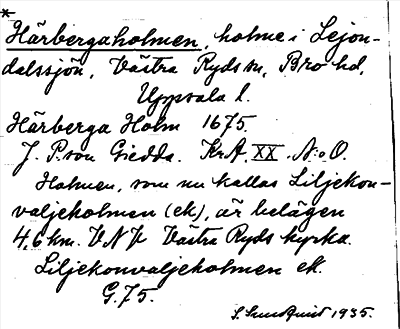 *
Härbergaholmen, holme i Lejon-
dalssjön, Västra Ryds sn, Bro hd,
Uppsala l.
Härberga Holm 1675.
J. P:son Giedda. KrA, XX. N:o O.
Holmen, som nu kallas Liljekon-
valjeholmen (ek), är belägen
4,6 km. VNV Västra Ryds kyrka.
Liljekonvaljeholmen ek.
G. 75.
S. Sundquist 1935.